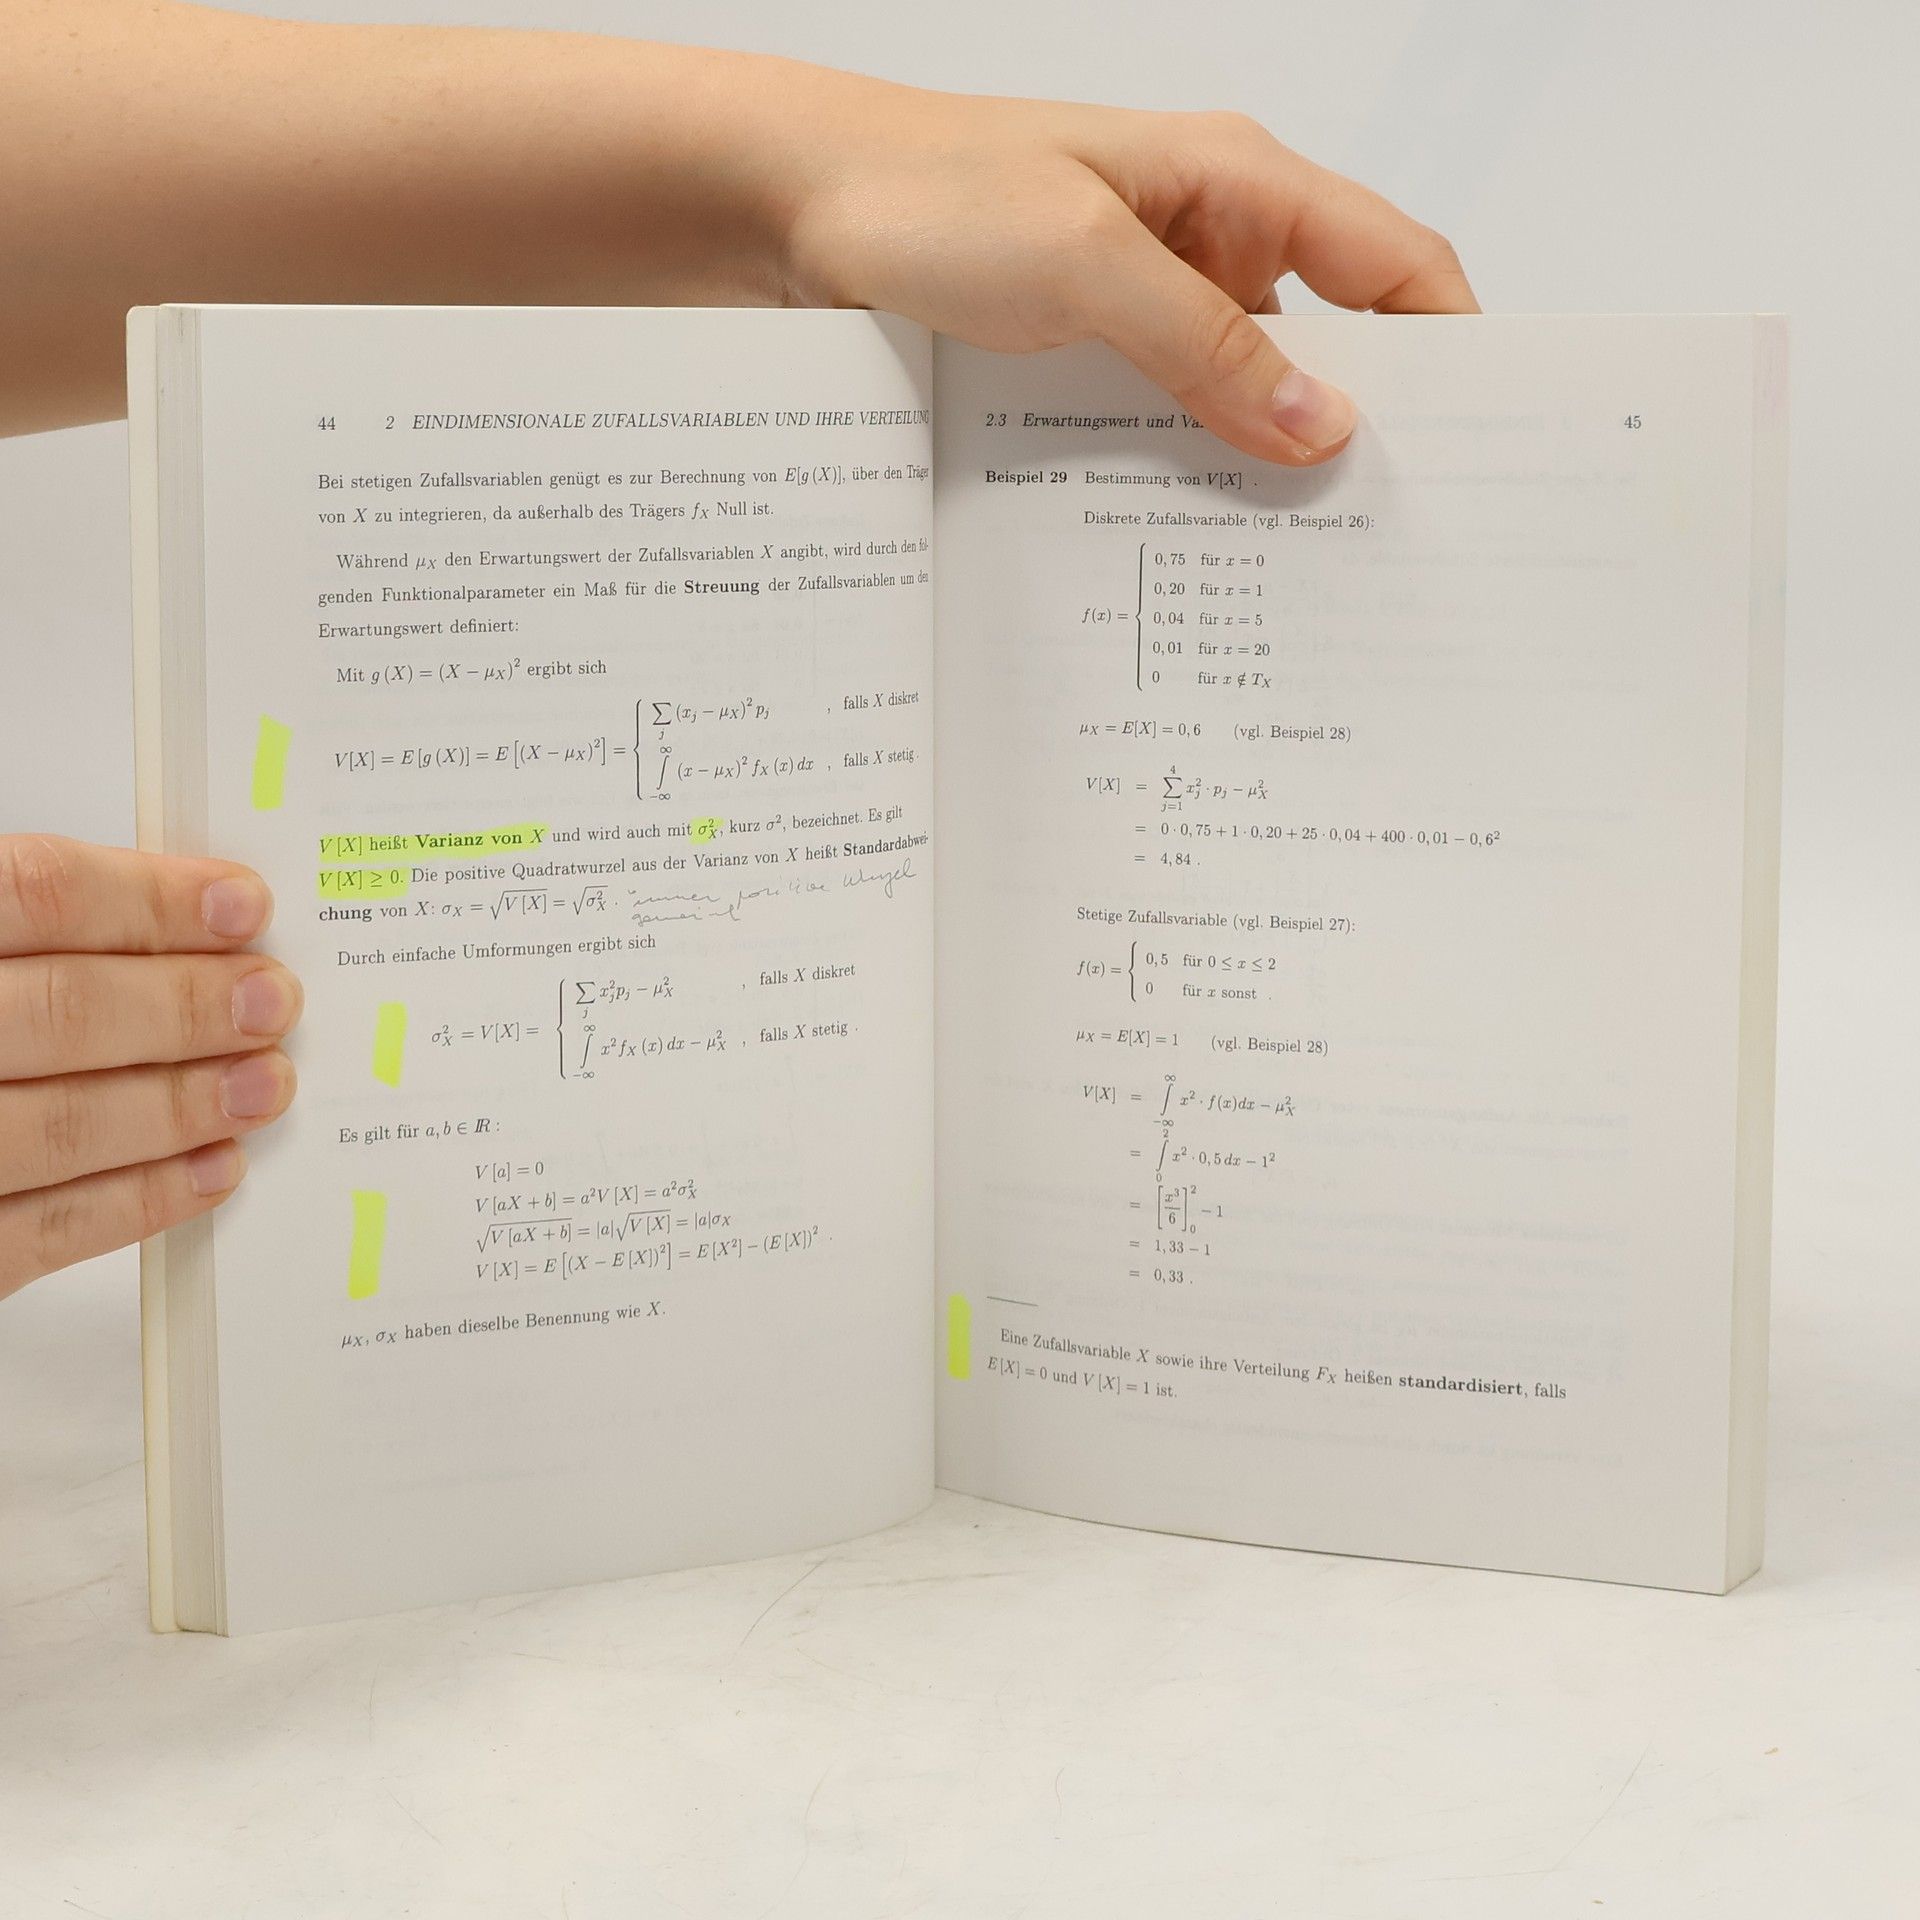 44 2 EINDIMENSIONALE ZUFALLSVARIABLEN UND IHRE VERTEILUNG
Bei stetigen Zufallsvariablen genügt es zur Berechnung von E[g (X)], über den Träger
von X zu integrieren, da außerhalb des Trägers f_X Null ist.
Während μ_X den Erwartungswert der Zufallsvariablen X angibt, wird durch den fol-
genden Funktionalparameter ein Maß für die Streuung der Zufallsvariablen um den
Erwartungswert definiert:
Mit g (X) = (X − μ_X)² ergibt sich
∑_j (x_j − μ_X)² p_j , falls X diskret
V[X] = E[g (X)] = E[(X − μ_X)²] = {
∫_{−∞}^{∞} (x − μ_X)² f_X (x) dx , falls X stetig .
V [X] heißt Varianz von X und wird auch mit σ_X², kurz σ², bezeichnet. Es gilt
V [X] ≥ 0. Die positive Quadratwurzel aus der Varianz von X heißt Standardabwei-
chung von X: σ_X = √V [X] = √σ_X² . immer positive Wurzel
gemeint
Durch einfache Umformungen ergibt sich
∑_j x_j² p_j − μ_X² , falls X diskret
σ_X² = V[X] = {
∫_{−∞}^{∞} x² f_X (x) dx − μ_X² , falls X stetig .
Es gilt für a, b ∈ ℝ :
V [a] = 0
V [aX + b] = a²V [X] = a²σ_X²
√V [aX + b] = |a|√V [X] = |a|σ_X
V [X] = E [(X − E [X])²] = E [X²] − (E [X])² .
μ_X, σ_X haben dieselbe Benennung wie X.
2.3 Erwartungswert und 45
Beispiel 29 Bestimmung von V[X] .
Diskrete Zufallsvariable (vgl. Beispiel 26):
0, 75 für x = 0
0, 20 für x = 1
f(x) = { 0, 04 für x = 5
0, 01 für x = 20
0 für x ∉ T_X
μ_X = E[X] = 0, 6 (vgl. Beispiel 28)
V[X] = ∑_{j=1}^{4} x_j² · p_j − μ_X²
= 0 · 0, 75 + 1 · 0, 20 + 25 · 0, 04 + 400 · 0, 01 − 0, 6²
= 4, 84 .
Stetige Zufallsvariable (vgl. Beispiel 27):
f(x) = { 0, 5 für 0 ≤ x ≤ 2
0 für x sonst .
μ_X = E[X] = 1 (vgl. Beispiel 28)
V[X] = ∫_{−∞}^{∞} x² · f(x)dx − μ_X²
= ∫_0^2 x² · 0, 5 dx − 1²
= [x³/6]_0^2 − 1
= 1, 33 − 1
= 0, 33 .
Eine Zufallsvariable X sowie ihre Verteilung F_X heißen standardisiert, falls
E [X] = 0 und V [X] = 1 ist.